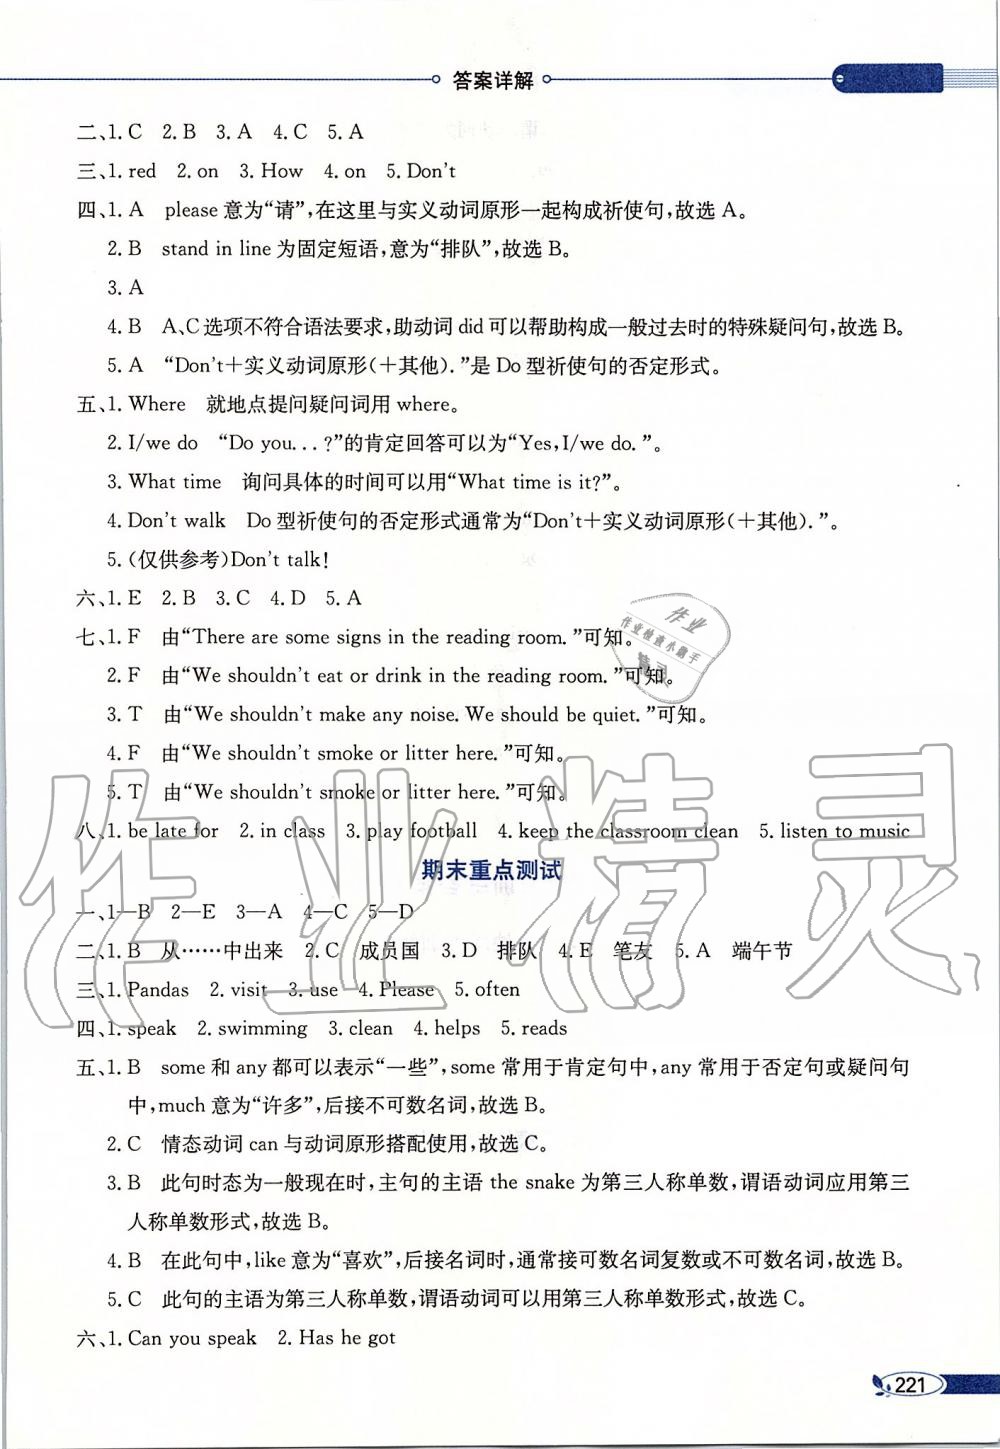 答案详解
二、1. C 2. B 3. A 4. C 5. A
三、1. red 2. on 3. How 4. on 5. Don't
四、1. A please意为“请”,在这里与实义动词原形一起构成祈使句,故选 A。
2. B stand in line 为固定短语,意为“排队”,故选 B。
3. A
4. B A、C选项不符合语法要求,助动词 did 可以帮助构成一般过去时的特殊疑问句,故选 B。
5. A “Don't+实义动词原形(+其他). ”是 Do 型祈使句的否定形式。
五、1. Where 就地点提问疑问词用 where。
2. I/we do “Do you. . . ?”的肯定回答可以为“Yes,I/we do. ”。
3. What time 询问具体的时间可以用“What time is it?”。
4. Don't walk Do 型祈使句的否定形式通常为“Don't+实义动词原形(+其他). ”。
5. (仅供参考)Don't talk!
六、1. E 2. B 3. C 4. D 5. A
七、1. F 由“There are some signs in the reading room. ”可知。
2. F 由“We shouldn't eat or drink in the reading room. ”可知。
3. T 由“We shouldn't make any noise. We should be quiet. ”可知。
4. F 由“We shouldn't smoke or litter here. ”可知。
5. T 由“We shouldn't smoke or litter here. ”可知。
八、1. be late for 2. in class 3. play football 4. keep the classroom clean 5. listen to music
期末重点测试
一、1—B 2—E 3—A 4—C 5—D
二、1. B 从……中出来 2. C 成员国 3. D 排队 4. E 笔友 5. A 端午节
三、1. Pandas 2. visit 3. use 4. Please 5. often
四、1. speak 2. swimming 3. clean 4. helps 5. reads
五、1. B some 和 any 都可以表示“一些”,some 常用于肯定句中,any 常用于否定句或疑问句
中,much 意为“许多”,后接不可数名词,故选 B。
2. C 情态动词 can 与动词原形搭配使用,故选 C。
3. B 此句时态为一般现在时,主句的主语 the snake 为第三人称单数,谓语动词应用第三
人称单数形式,故选 B。
4. B 在此句中,like 意为“喜欢”,后接名词时,通常接可数名词复数或不可数名词,故选 B。
5. C 此句的主语为第三人称单数,谓语动词可以用第三人称单数形式,故选 C。
六、1. Can you speak 2. Has he got
221
作业
作业检查小助手
作业精灵